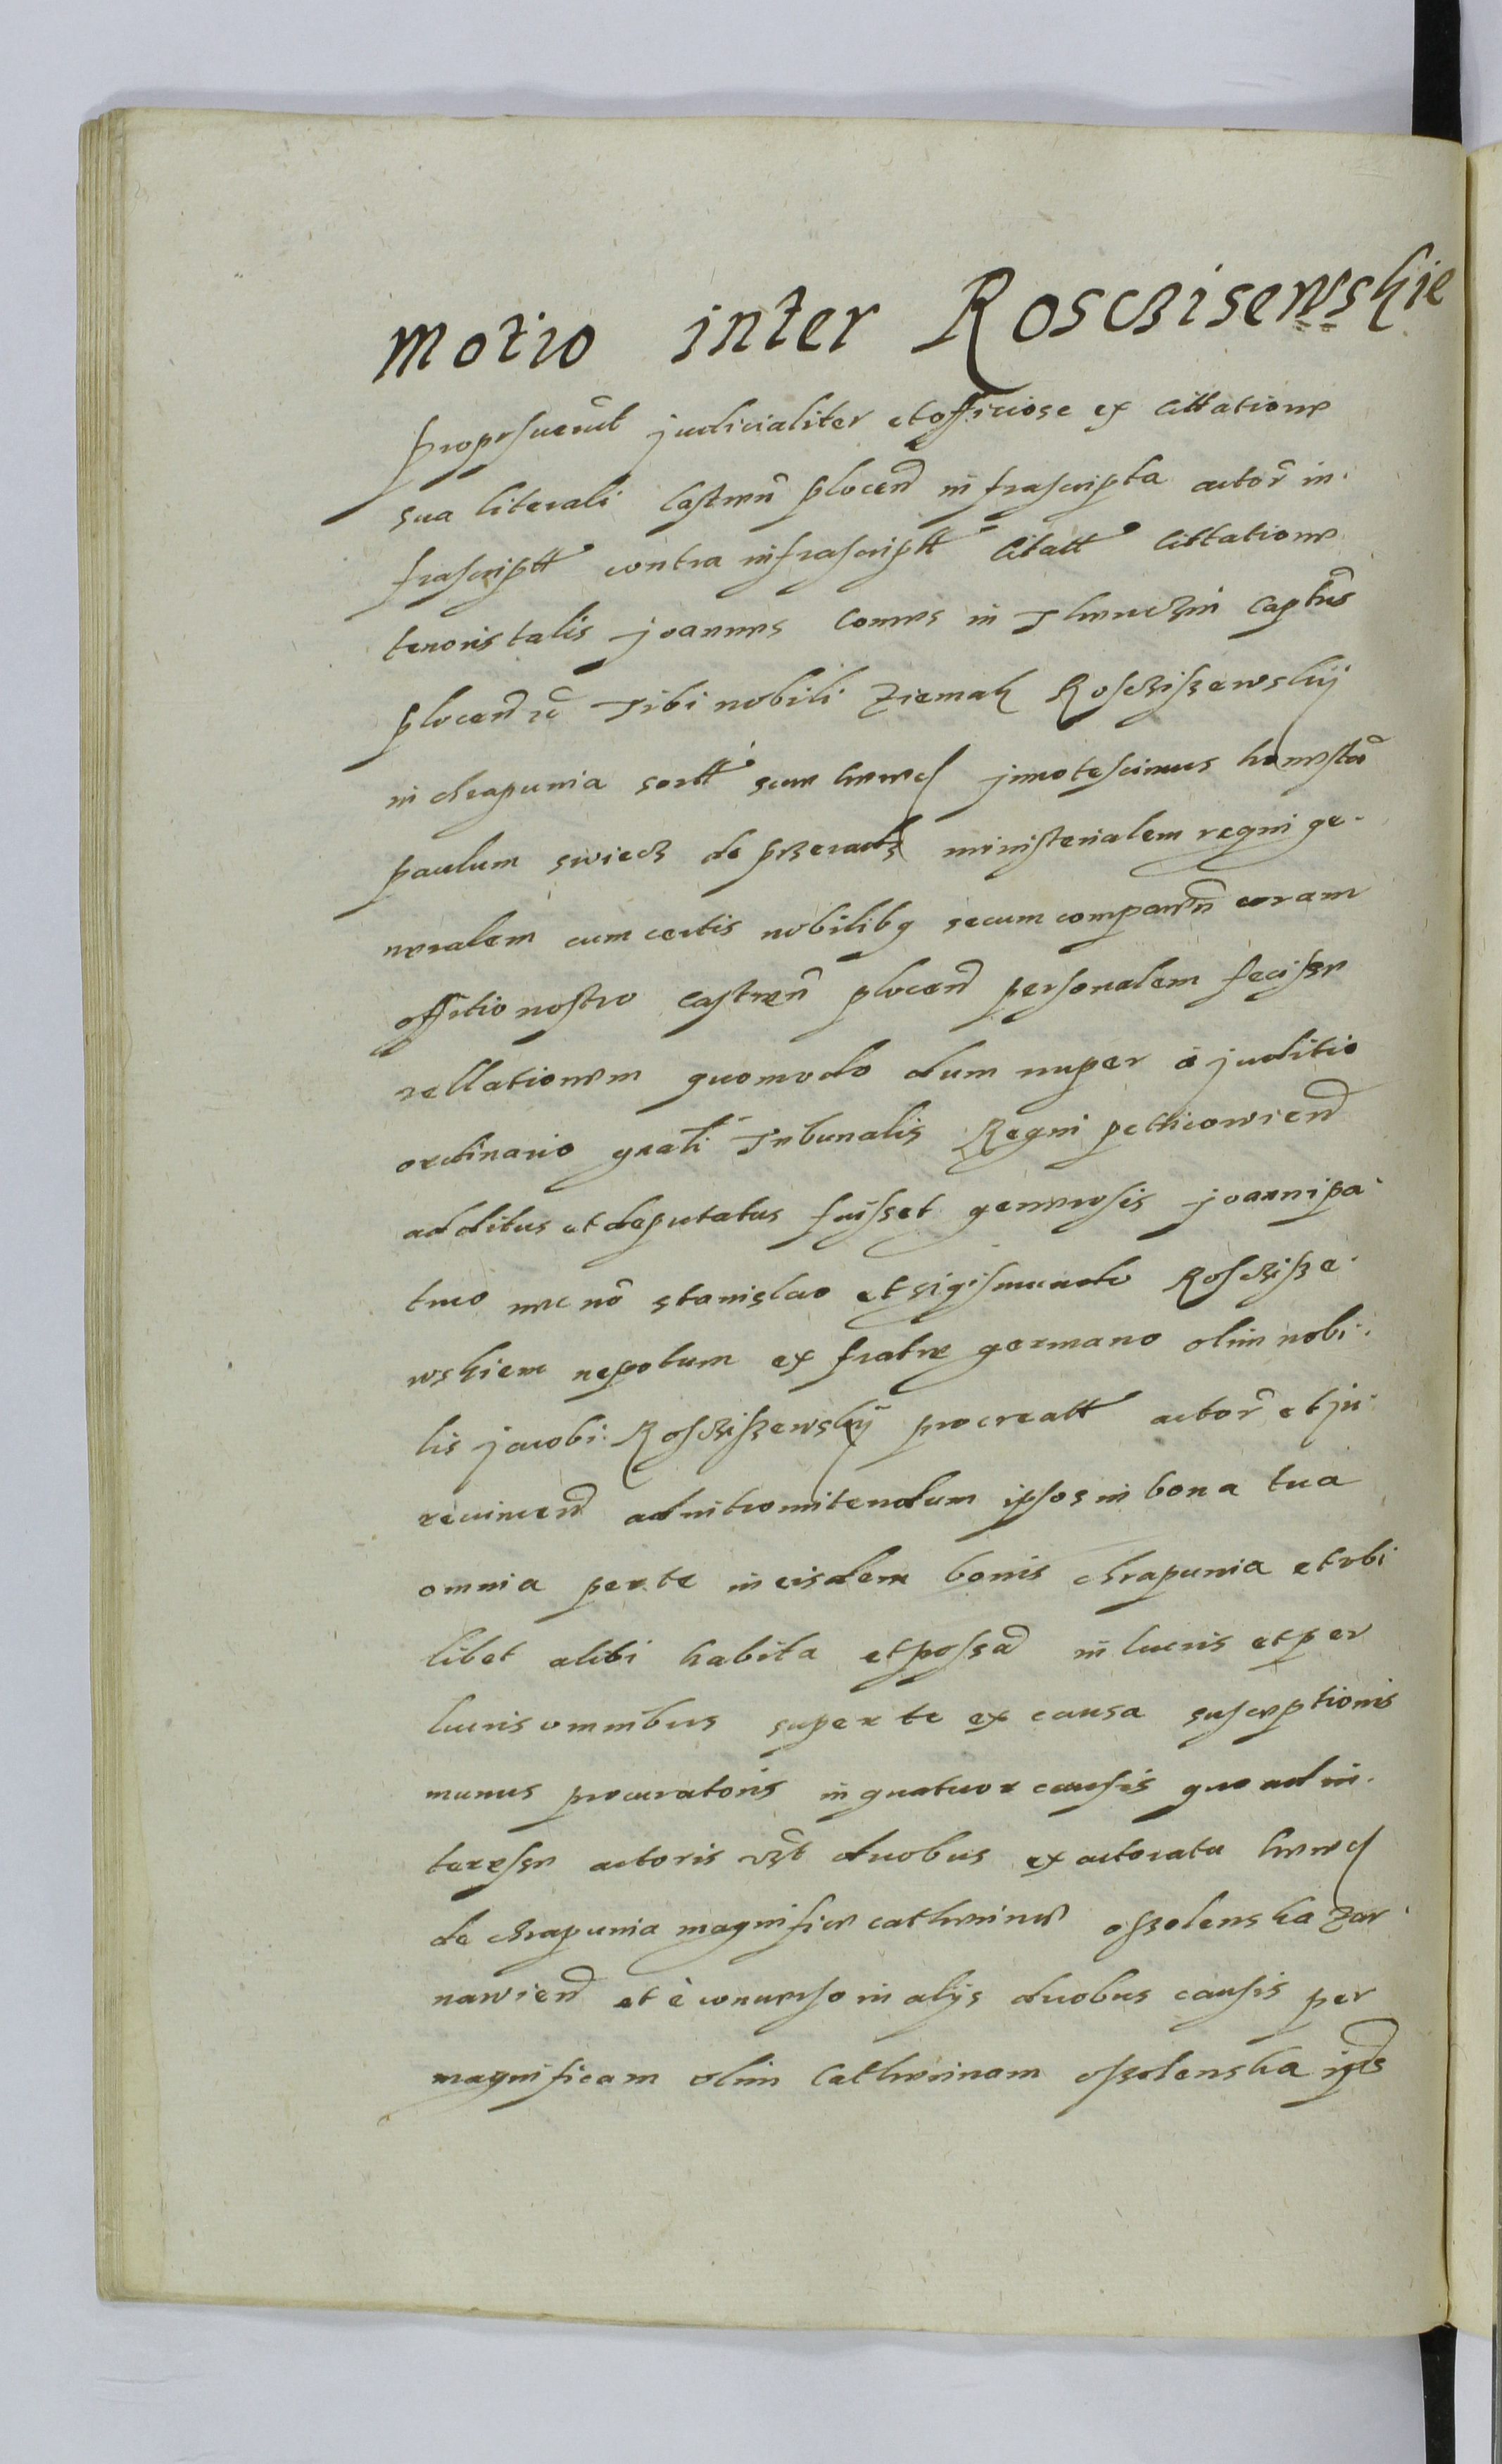 Motio inter Rosczisewskie
proposuerũt judicialiter et officiose ex cittatione
sua literali Castren̄ plocen̄ infrascripta actor̃ in
frascriptt contra infrascriptt Citatt cittatione
tenoris talis joannes Comes in Thenczin Capt̃ns
plocen̄ Tibi nobili Ziemak Roscziszewskij
in chrapunia sortt jnnotescimus honestũ
paulum swiecz de ministerialem regni ge
neralem cum certis nobilibq secum comparen̄ coram
offitio nostro castren̄ plocen̄ personalem fecisse
rellationem quomodo dum nuper à juditio
ordinario gnali Tribunalis Regni petricovien̄
additus et deputatus fuisset generosis joanni pa
truo nec nõ stanislao et sigismundo Rosczisze
wskiem nepotum ex fratre germano olim nobi
lis jacobi Roscziszewskij procreatt actor̃ et ju
revincen̄ ad intromitendum ipsos in bona tua
omnia per te in eisdem bonis chrapunia et vbi
libet alibi habita et possã in lucris et per
lucris omnibus super te ex causa susceptionis
munus procuratoris in quatuor causis quo ad in
teresse actoris vz̃t duobus ex actoratu
de chrapunia magnifice catherine oszolenska Zar
nawien̄ et è converso in alijs duobus causis per
magnificam olim Catherinam oszolenska